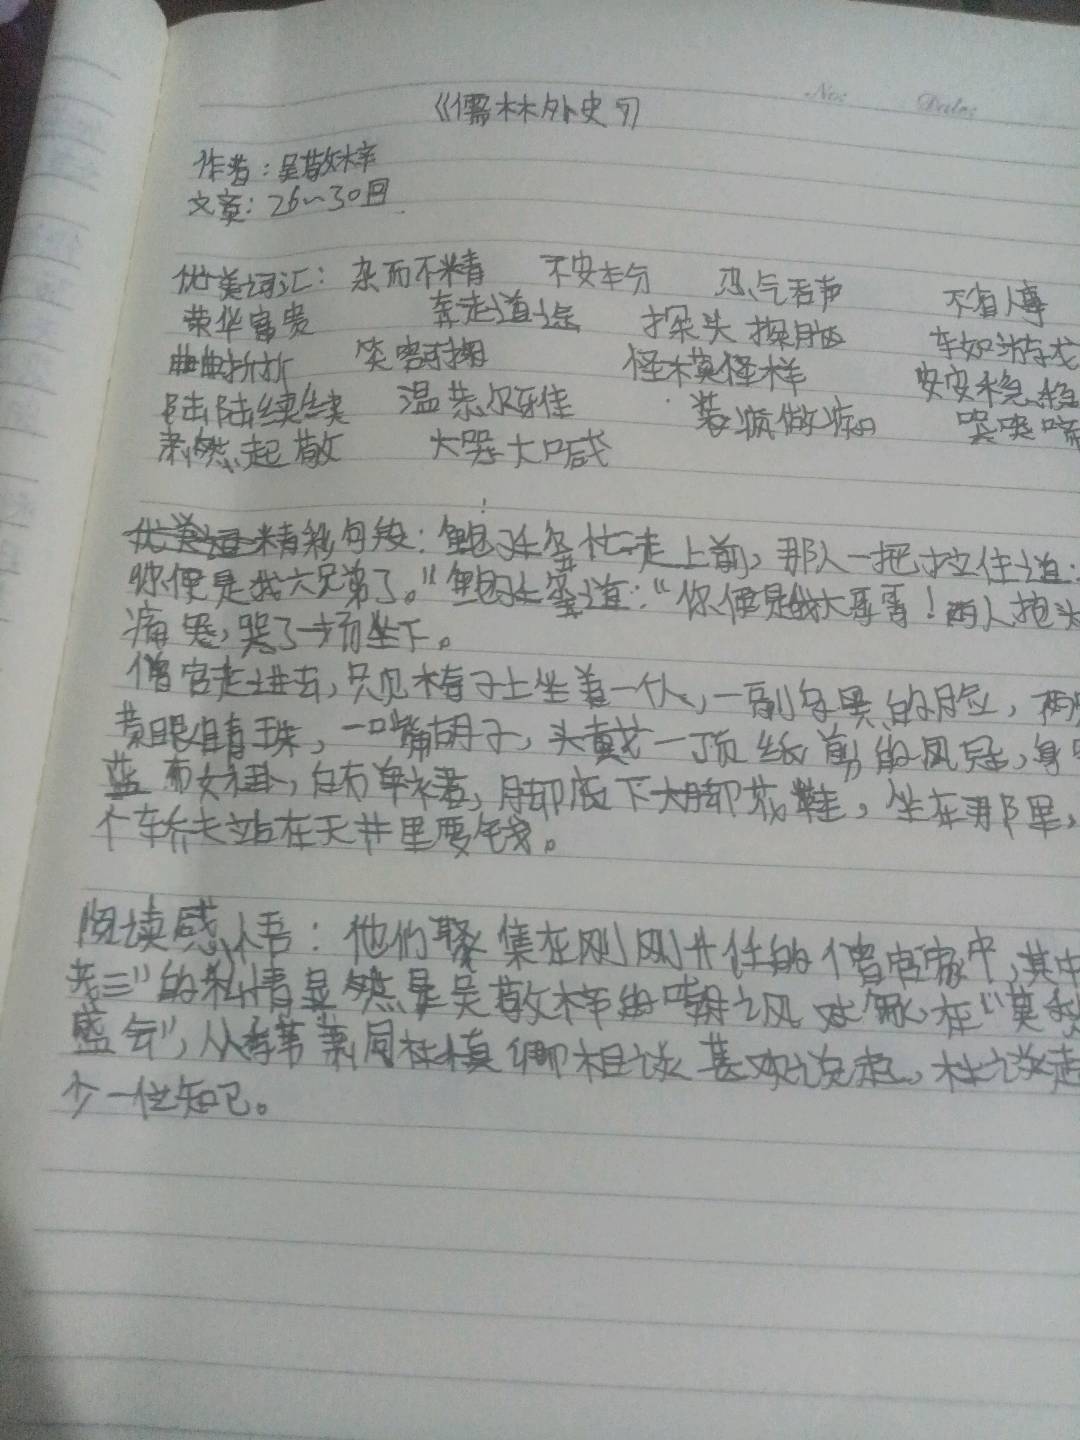 《儒林外史》
No:
Date:
作者：吴敬梓
文章：26~30回
优美词汇：杂而不精 不安本分 忍气吞声 不省人事
荣华富贵 奔走道途 探头探脑 车如游龙
曲曲折折 笑容可掬 怪模怪样 安安稳稳
陆陆续续 温恭尔雅 装疯做病
肃然起敬 大哭大喊
精彩句段：鲍廷玺忙走上前，那人一把拉住道：
你便是我六兄弟了。"鲍廷玺道："你便是我大哥哥！两人抱头
痛哭，哭了一场坐下。
僧官走进去，只见椅子上坐着一个人，一副乌黑的脸，两
黄眼睛珠，一嘴胡子，头戴一顶纸剪的凤冠，身
蓝布女褂，白布单裙，脚底下大脚花鞋，坐在那里，
个轿夫站在天井里要钱。
阅读感悟：他们聚集在刚刚升任的僧官家中，其中
老三"的私情显然是吴敬梓的嘲之风 在"莫愁
盛会"，从季苇萧同杜慎卿相谈甚欢说起，杜谈起
少一位知己。